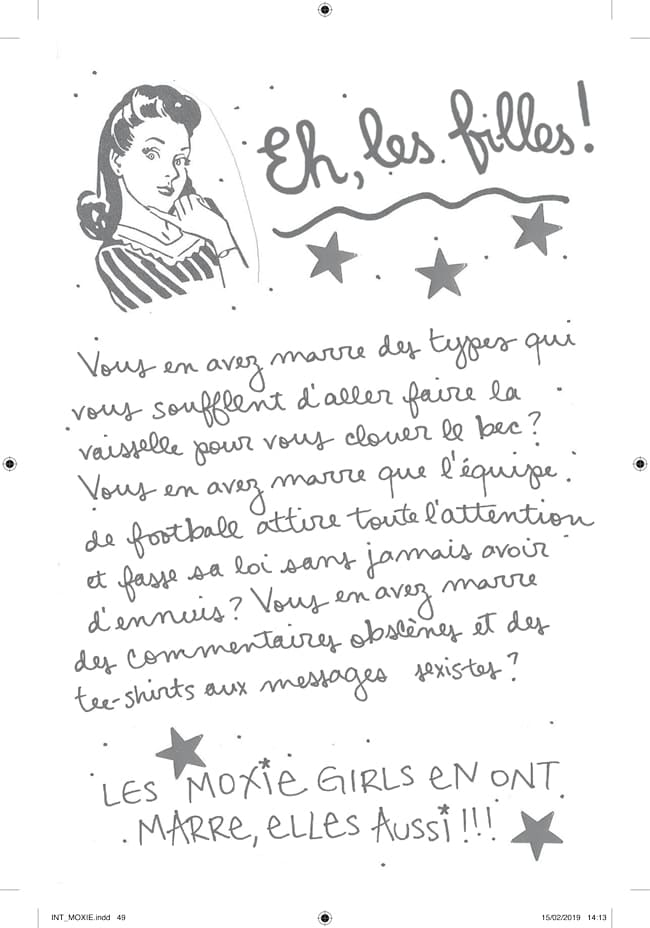 Eh, les filles!
Vous en avez marre des types qui
vous soufflent d'aller faire la
vaisselle pour vous clouer le bec?
Vous en avez marre que l'équipe
de football attire toute l'attention
et fasse sa loi sans jamais avoir
d'ennuis? Vous en avez marre
des commentaires obscènes et des
tee-shirts aux messages sexistes?
LES MOXiE GIRLS eN ONT
MARRe, eLLES AUSSi!!!
INT_MOXIE.indd 49 15/02/2019 14:13